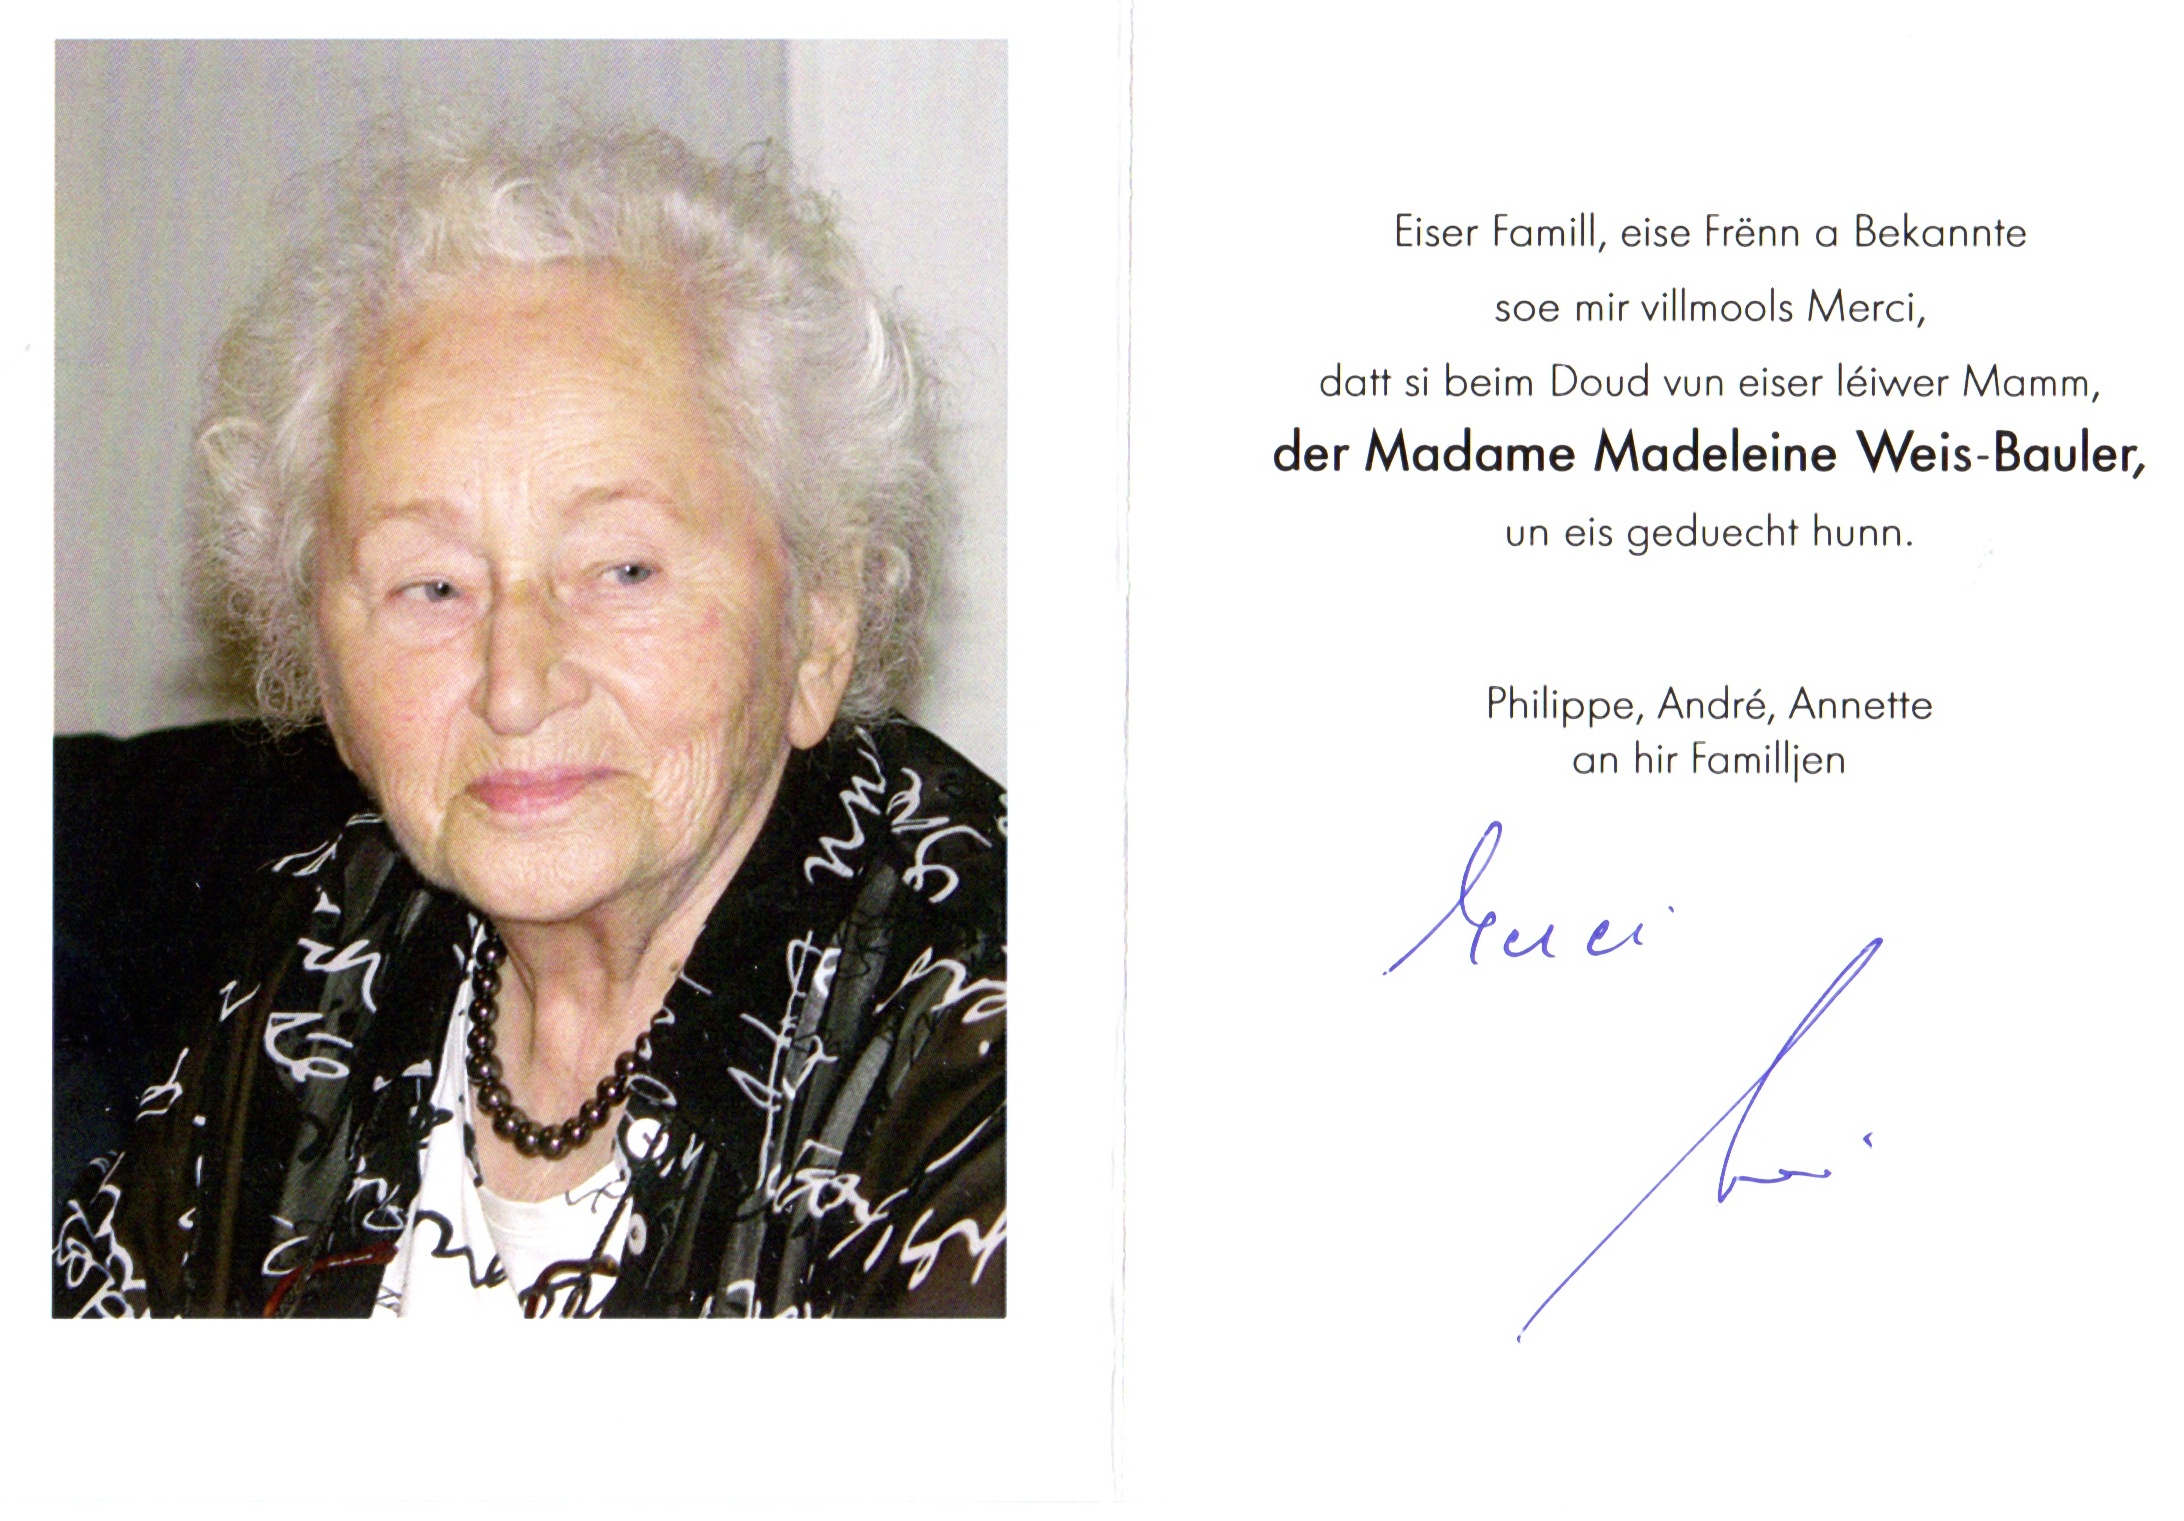 Eiser Famill, eise Frënn a Bekannte
soe mir villmools Merci,
datt si beim Doud vun eiser léiwer Mamm,
der Madame Madeleine Weis-Bauler,
un eis geduecht hunn.
Philippe, André, Annette
an hir Familljen
Merci